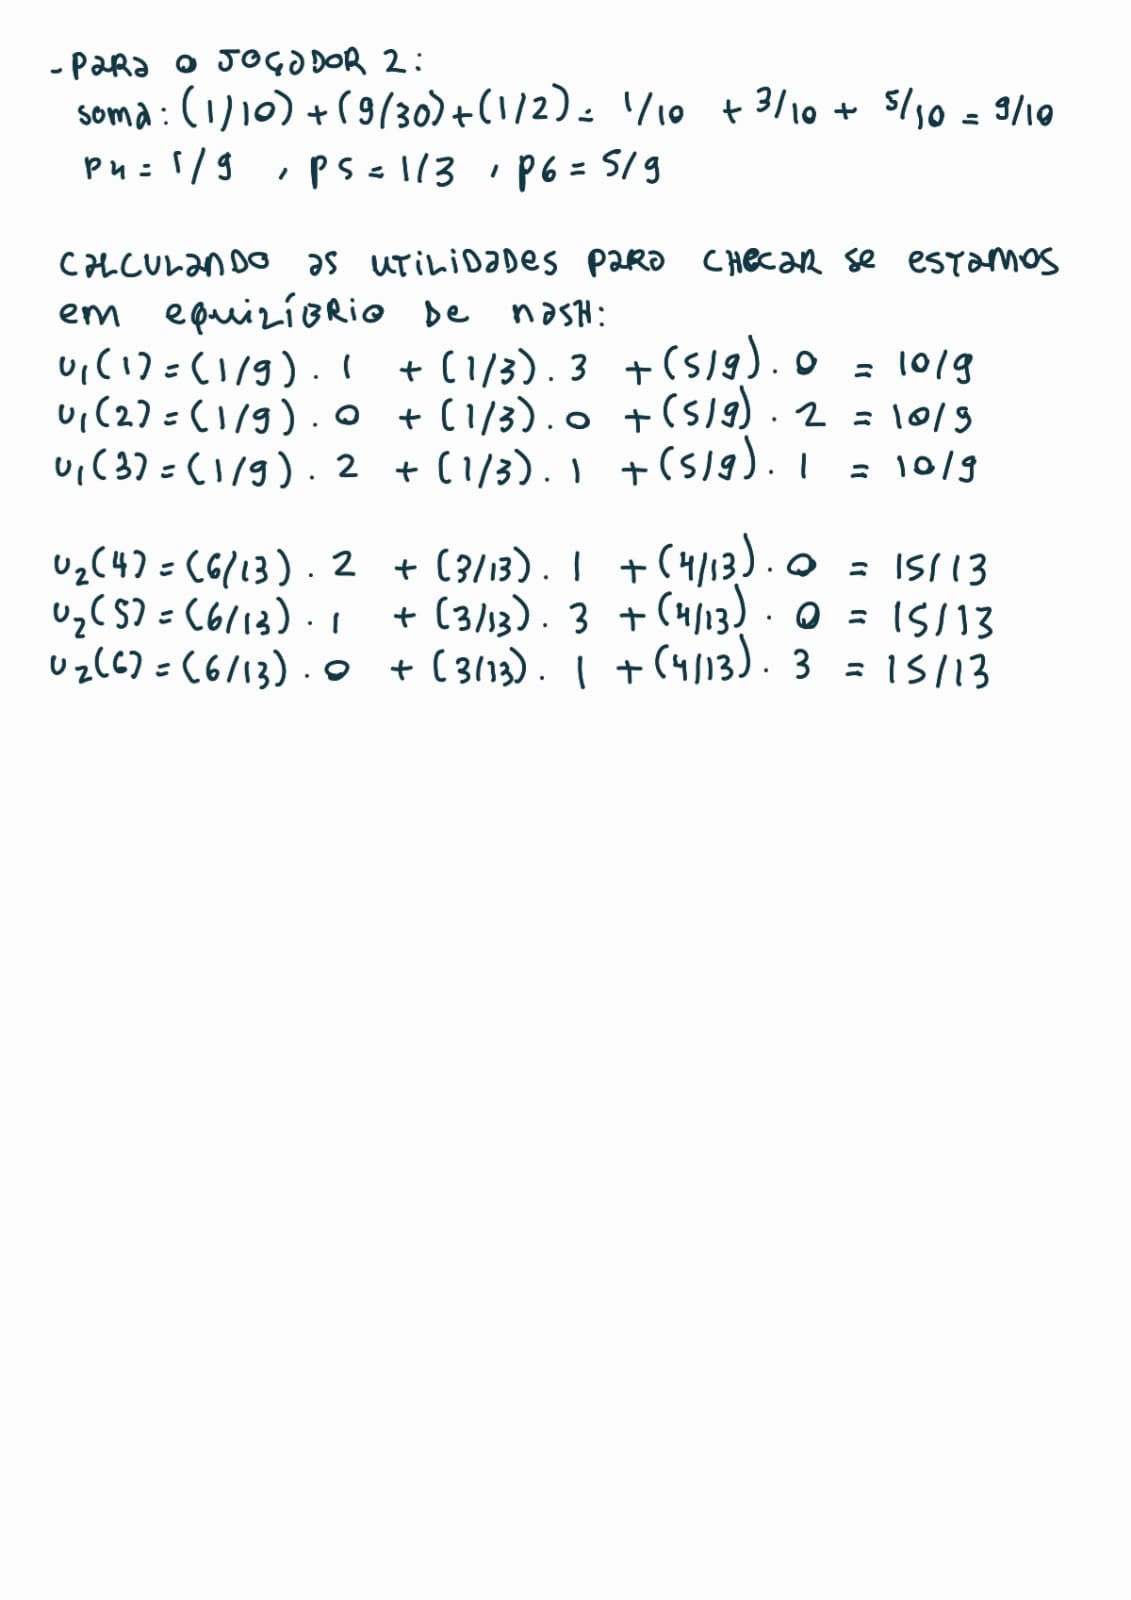 - Para o Jogador 2:
soma: (1/10) + (9/30) + (1/2) = 1/10 + 3/10 + 5/10 = 9/10
P4 = 1/9 , P5 = 1/3 , P6 = 5/9
Calculando as utilidades para checar se estamos
em equilíbrio de nash:
u₁(1) = (1/9) . 1 + (1/3) . 3 + (5/9) . 0 = 10/9
u₁(2) = (1/9) . 0 + (1/3) . 0 + (5/9) . 2 = 10/9
u₁(3) = (1/9) . 2 + (1/3) . 1 + (5/9) . 1 = 10/9
u₂(4) = (6/13) . 2 + (3/13) . 1 + (4/13) . 0 = 15/13
u₂(5) = (6/13) . 1 + (3/13) . 3 + (4/13) . 0 = 15/13
u₂(6) = (6/13) . 0 + (3/13) . 1 + (4/13) . 3 = 15/13